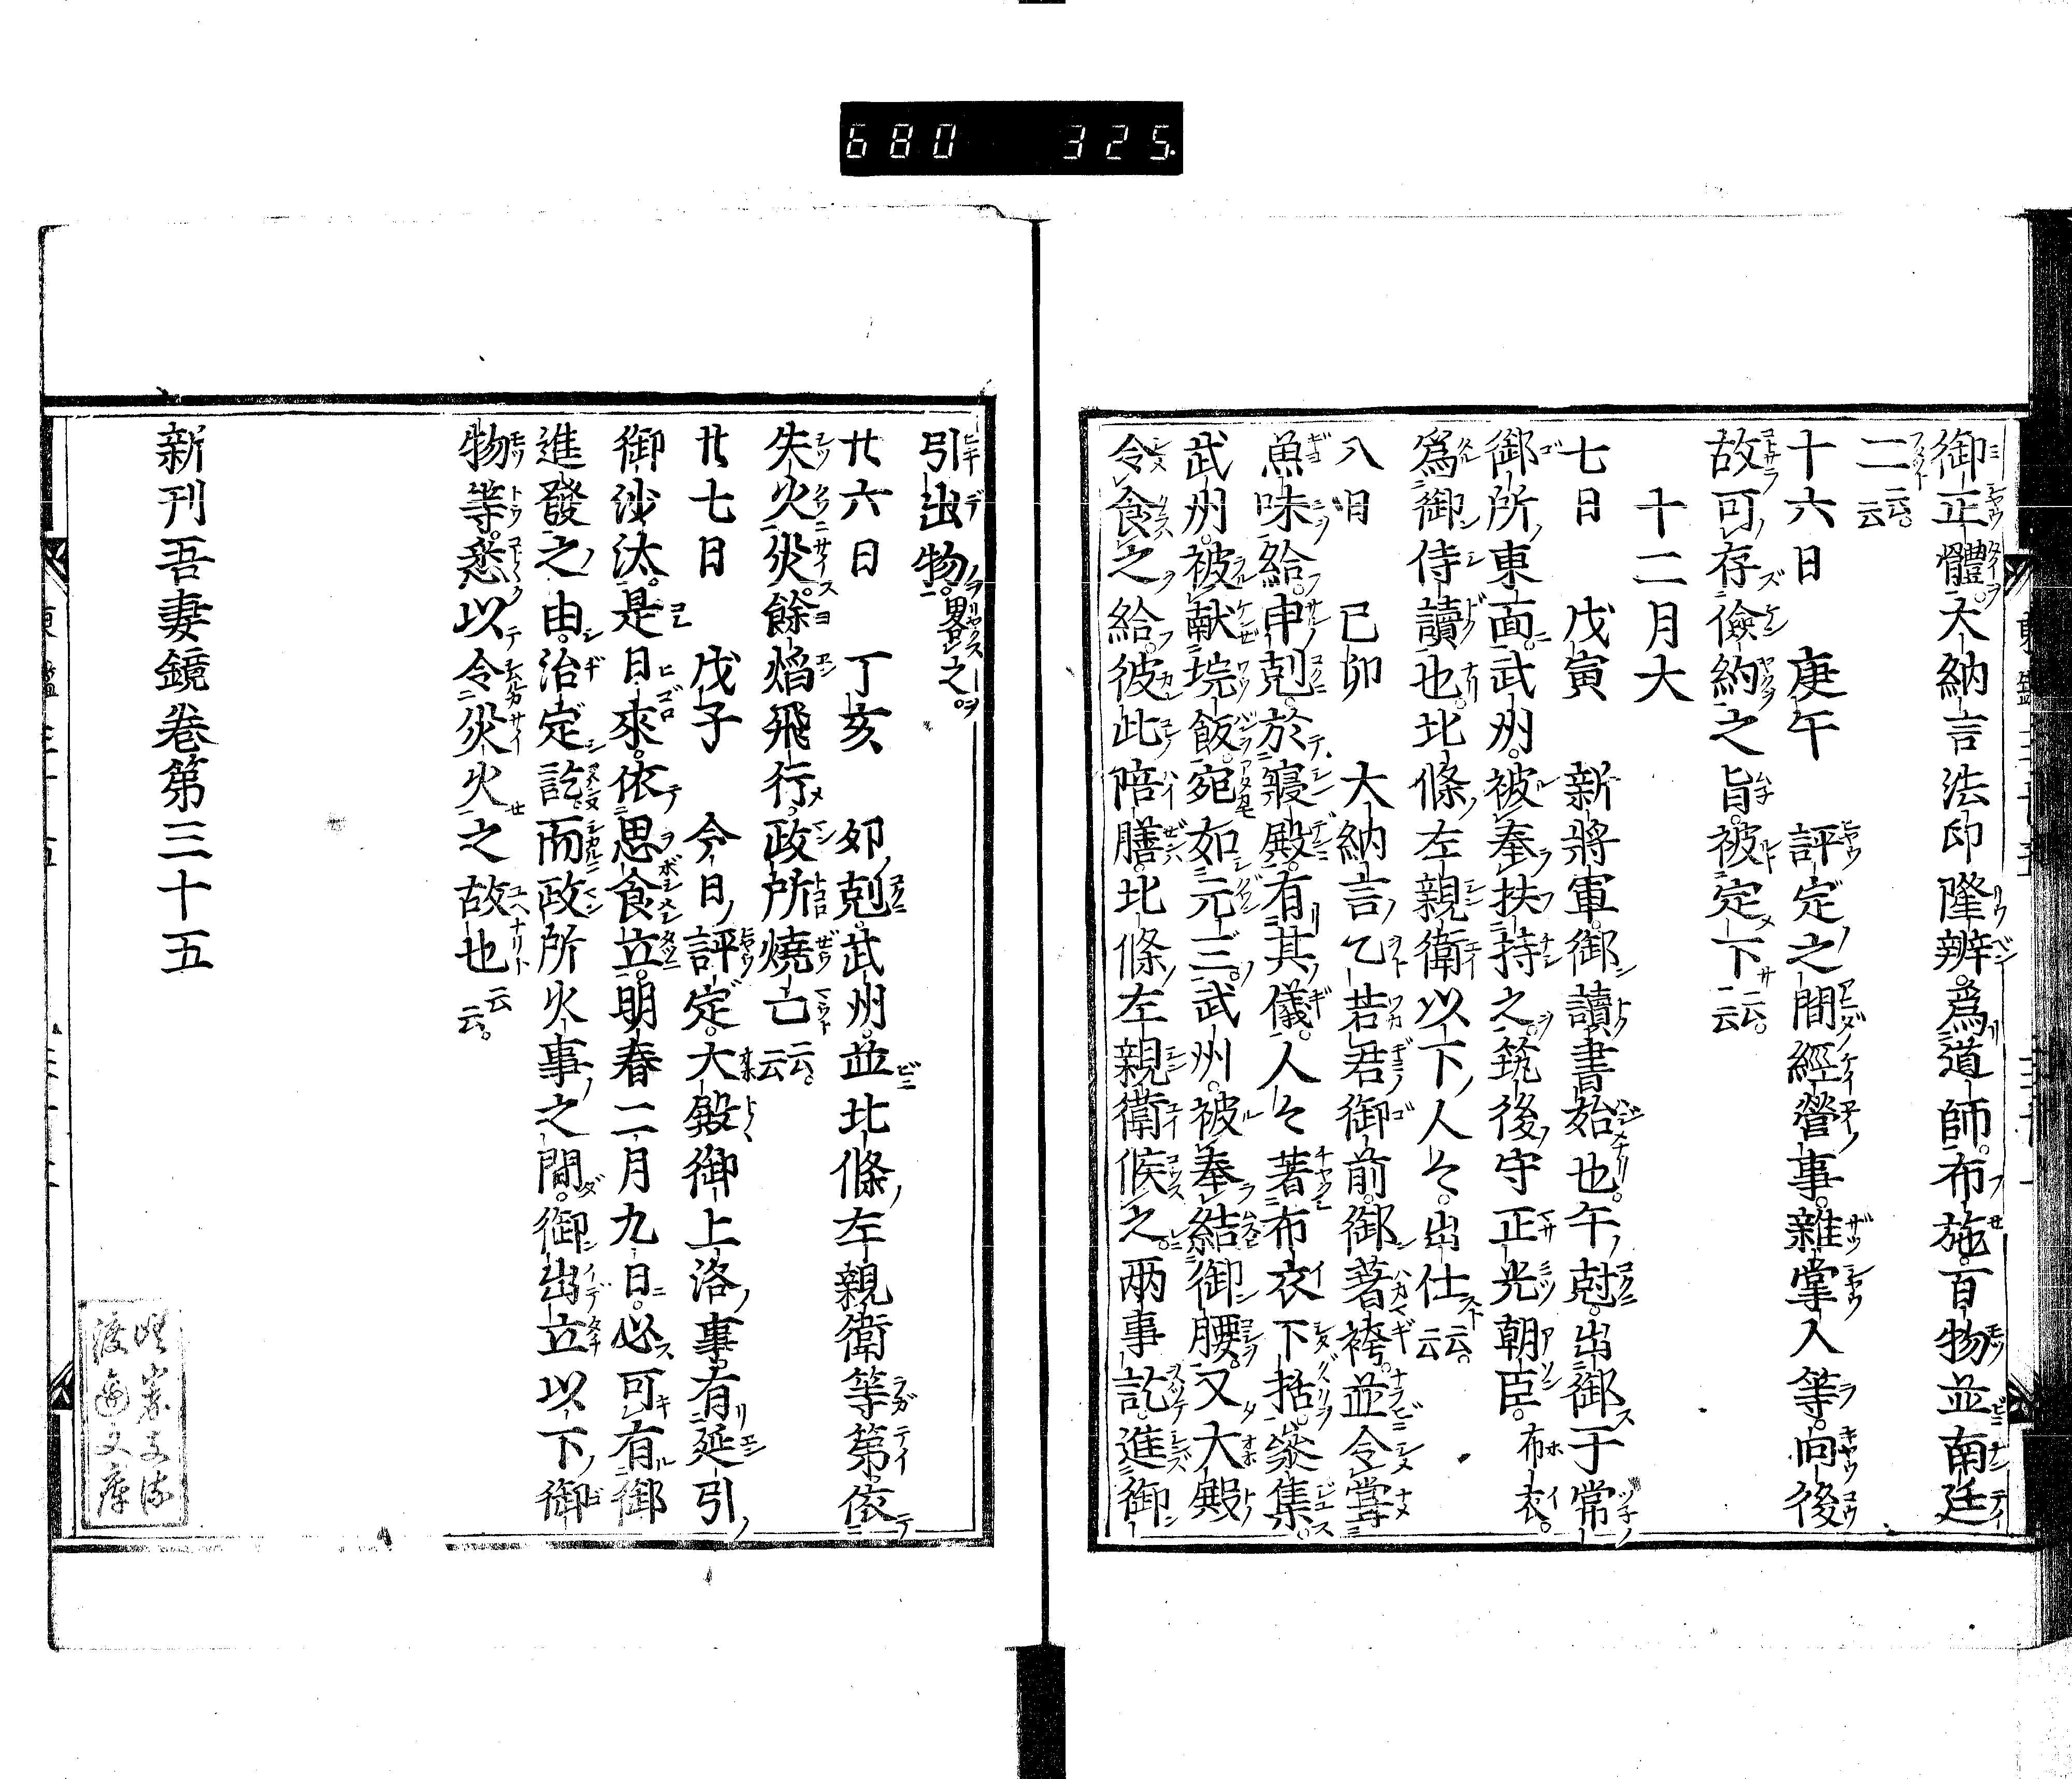 680 325
御正體大納言法印隆辨爲道師布施百物並南廷
二云云
十六日 庚午 評定之間經營事雜掌人等向後
故可存儉約之旨被定下云云
十二月大
七日 戊寅 新將軍御讀書始也午尅出御于常
御所東面武州被奉扶持之筑後守正光朝臣布衣
爲御侍讀也北條左親衛以下人々出仕云云
八日 己卯 大納言乙若君御前御著袴並令嘗
魚味給申剋於寢殿有其儀人々著布衣下括參集
武州被献垸飯宛如元三武州被奉結御腰又大殿
令食之給彼此陪膳北條左親衛候之兩事訖進御
引出物畧之
廿六日 丁亥 卯剋武州並北條左親衛等第依
失火災餘焔飛行政所燒亡云云
廿七日 戊子 今日評定大殿御上洛事有延引
御沙汰是日來依思食立明春二月九日必可有御
進發之由治定訖而政所火事之間御出立以下御
物等悉以令災火之故也云云
新刊吾妻鏡卷第三十五
渡邊文庫